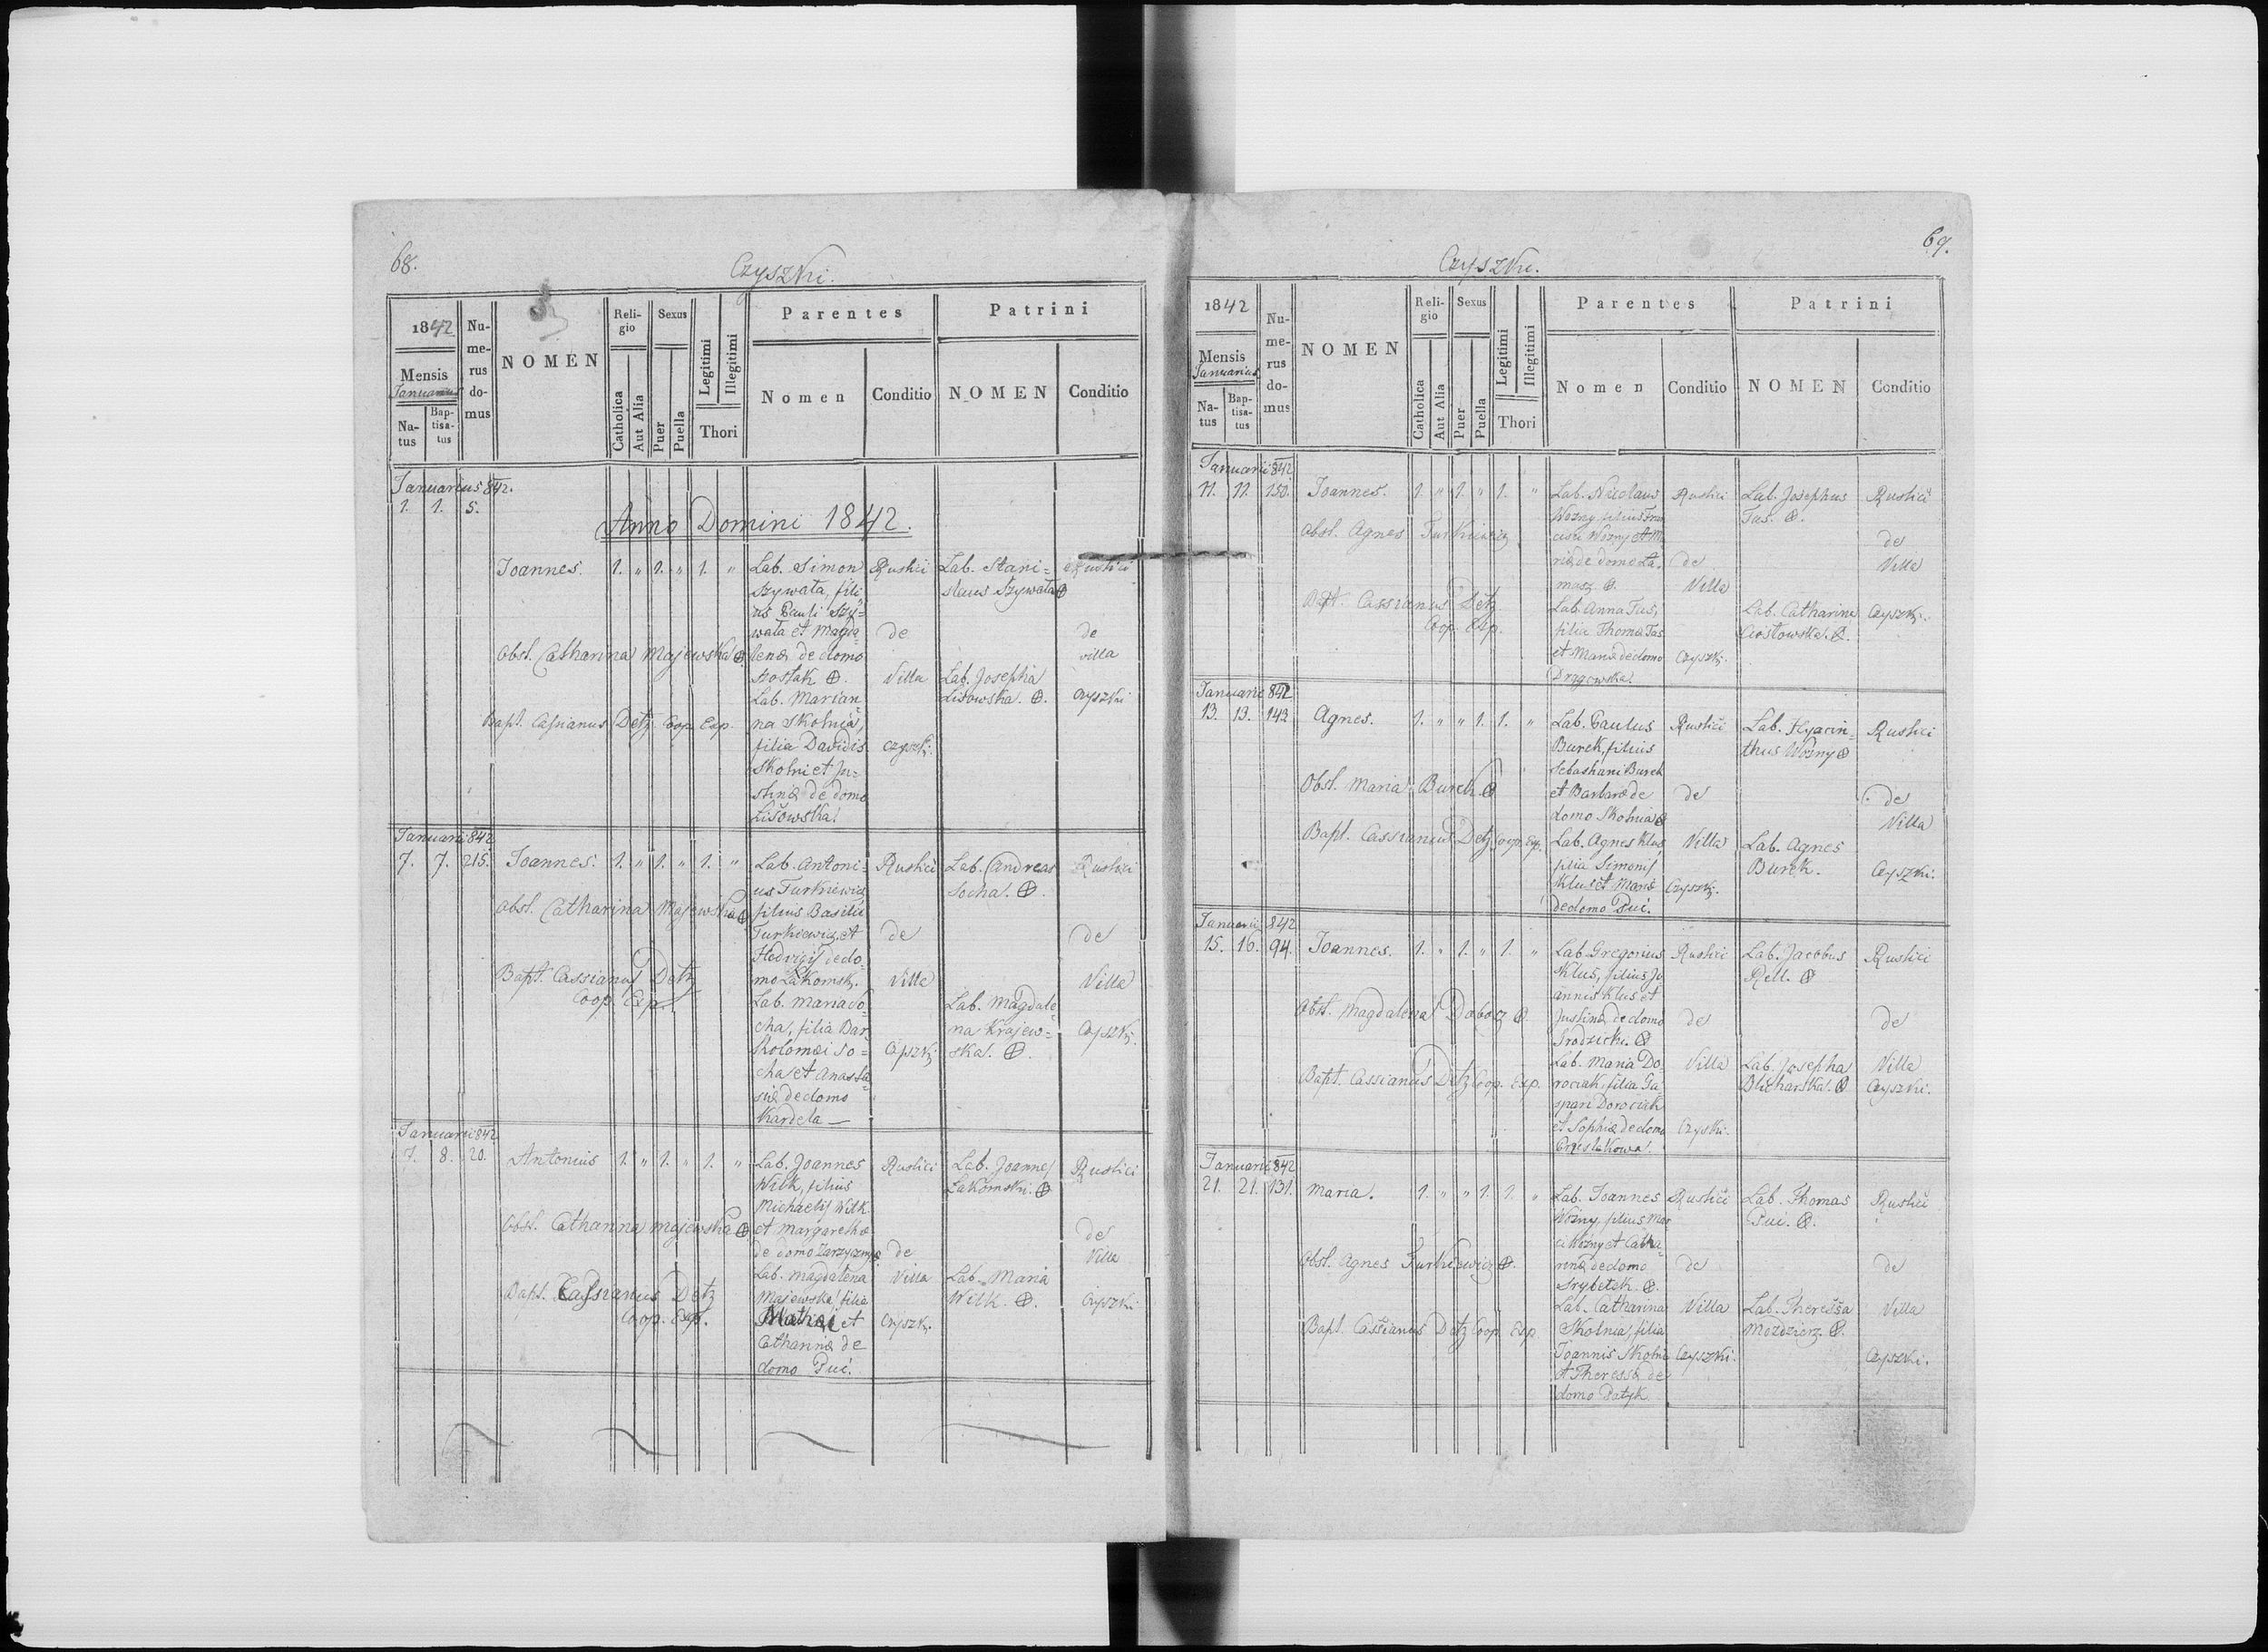 68.
Czyszki.
1842
Numerus domus
NOMEN
Religio
Sexus
Legitimi
Illegitimi
Parentes
Patrini
Mensis
Januarius
Natus
Baptisatus
Catholica
Aut Alia
Puer
Puella
Thori
Nomen
Conditio
NOMEN
Conditio
Januarius 842.
1. 1. 5.
Anno Domini 1842.
Joannes. 1. " 1. " 1. "
Obst. Catharina Majewska
Bapt. Cassianus Detz Coop. Exp.
Lab. Simon
Szywała, fili
us Pauli Szy=
wała et Magda=
lenæ de domo
Lab. Marian
na Skolnia,
filia Davidis
Skolni et Ju=
stinæ de domo
Lisowska.
Rustici
de
Villa
Czyszki.
Lab. Stani=
slaus Szywała
Lab. Josepha
Lisowska.
Rustici
de
villa
Czyszki
Januarii 842
7. 7. 215. Joannes. 1. " 1. " 1. "
Obst. Catharina Majewska
Bapt. Cassianus Detz
Coop. Exp.
Lab. Antoni=
us Turkiewicz
filius Basilii
Turkiewicz et
Hedvigis de do=
mo Łakomsk.
Lab. Maria So=
cha, filia Bar=
tholomæi So=
cha et Anasta=
siæ de domo
Kardela
Rustici
de
Villa
Czyszki
Lab. Andreas
Socha.
Lab. Magdale=
na Krajew=
ska.
Rustici
de
Villa
Czyszki.
Januarii 842
7. 8. 20. Antonius 1. " 1. " 1. "
Obst. Catharina Majewska
Bapt. Cassianus Detz
Coop. Exp.
Lab. Joannes
Wilk, filius
Michaelis Wilk
et Margarethæ
de domo
Lab. Magdalena
Majewska, filia
Mathiæ et
Catharinæ de
domo Puć.
Rustici
de
Villa
Czyszki.
Lab. Joannes
Łakomski.
Lab. Maria
Wilk.
Rustici
de
Villa
Czyszki
69.
Czyszki.
1842
Numerus domus
NOMEN
Religio
Sexus
Legitimi
Illegitimi
Parentes
Patrini
Mensis
Januarius
Natus
Baptisatus
Catholica
Aut Alia
Puer
Puella
Thori
Nomen
Conditio
NOMEN
Conditio
Januarii 842
11. 11. 150. Joannes. 1. " 1. " 1. "
Obst. Agnes Turkiewicz
Bapt. Cassianus Detz
Coop. Exp.
Lab. Nicolaus
Wozny filius Fran
cisci Wozny et Ma
riæ de domo
Lab. Anna Tas,
filia Thomæ Tas
et Mariæ de domo
Rustici
de
Villa
Czyszki.
Lab. Josephus
Tas.
Lab. Catharina
Rustici
de
Villa
Czyszki.
Januarii 842
13. 13. 143. Agnes. 1. " " 1. 1. "
Obst. Maria Burek
Bapt. Cassianus Detz Coop. Exp.
Lab. Paulus
Burek, filius
Sebastiani Burek
et Barbaræ de
domo Skolnia
Lab. Agnes Klus
filia Simonis
Klus et Mariæ
de domo Puć.
Rustici
de
Villa
Czyszki.
Lab. Hyacin=
thus Wozny
Lab. Agnes
Burek.
Rustici
de
Villa
Czyszki.
Januarii 842
15. 16. 94. Joannes. 1. " 1. " 1. "
Obst. Magdalena Dobosz
Bapt. Cassianus Detz Coop. Exp.
Lab. Gregorius
Klus, filius Jo
annis Klus et
Justinæ de domo
Grodzicki.
Lab. Maria Do
rociak, filia Ga
spari Dorociak
et Sophiæ de domo
Rustici
de
Villa
Czyszki.
Lab. Jacobus
Rell.
Lab. Josepha
Blicharska.
Rustici
de
Villa
Czyszki.
Januarii 842
21. 21. 131. Maria. 1. " " 1. 1. "
Obst. Agnes Turkiewicz
Bapt. Cassianus Detz Coop. Exp.
Lab. Joannes
Wozny, filius Mar
ci Wozny et Catha=
rinæ de domo
Lab. Catharina
Skolnia, filia
Joannis Skolni
et Theressæ de
domo Patyk
Rustici
de
Villa
Czyszki.
Lab. Thomas
Puć.
Lab. Theressa
Mozdzierz.
Rustici
de
Villa
Czyszki.